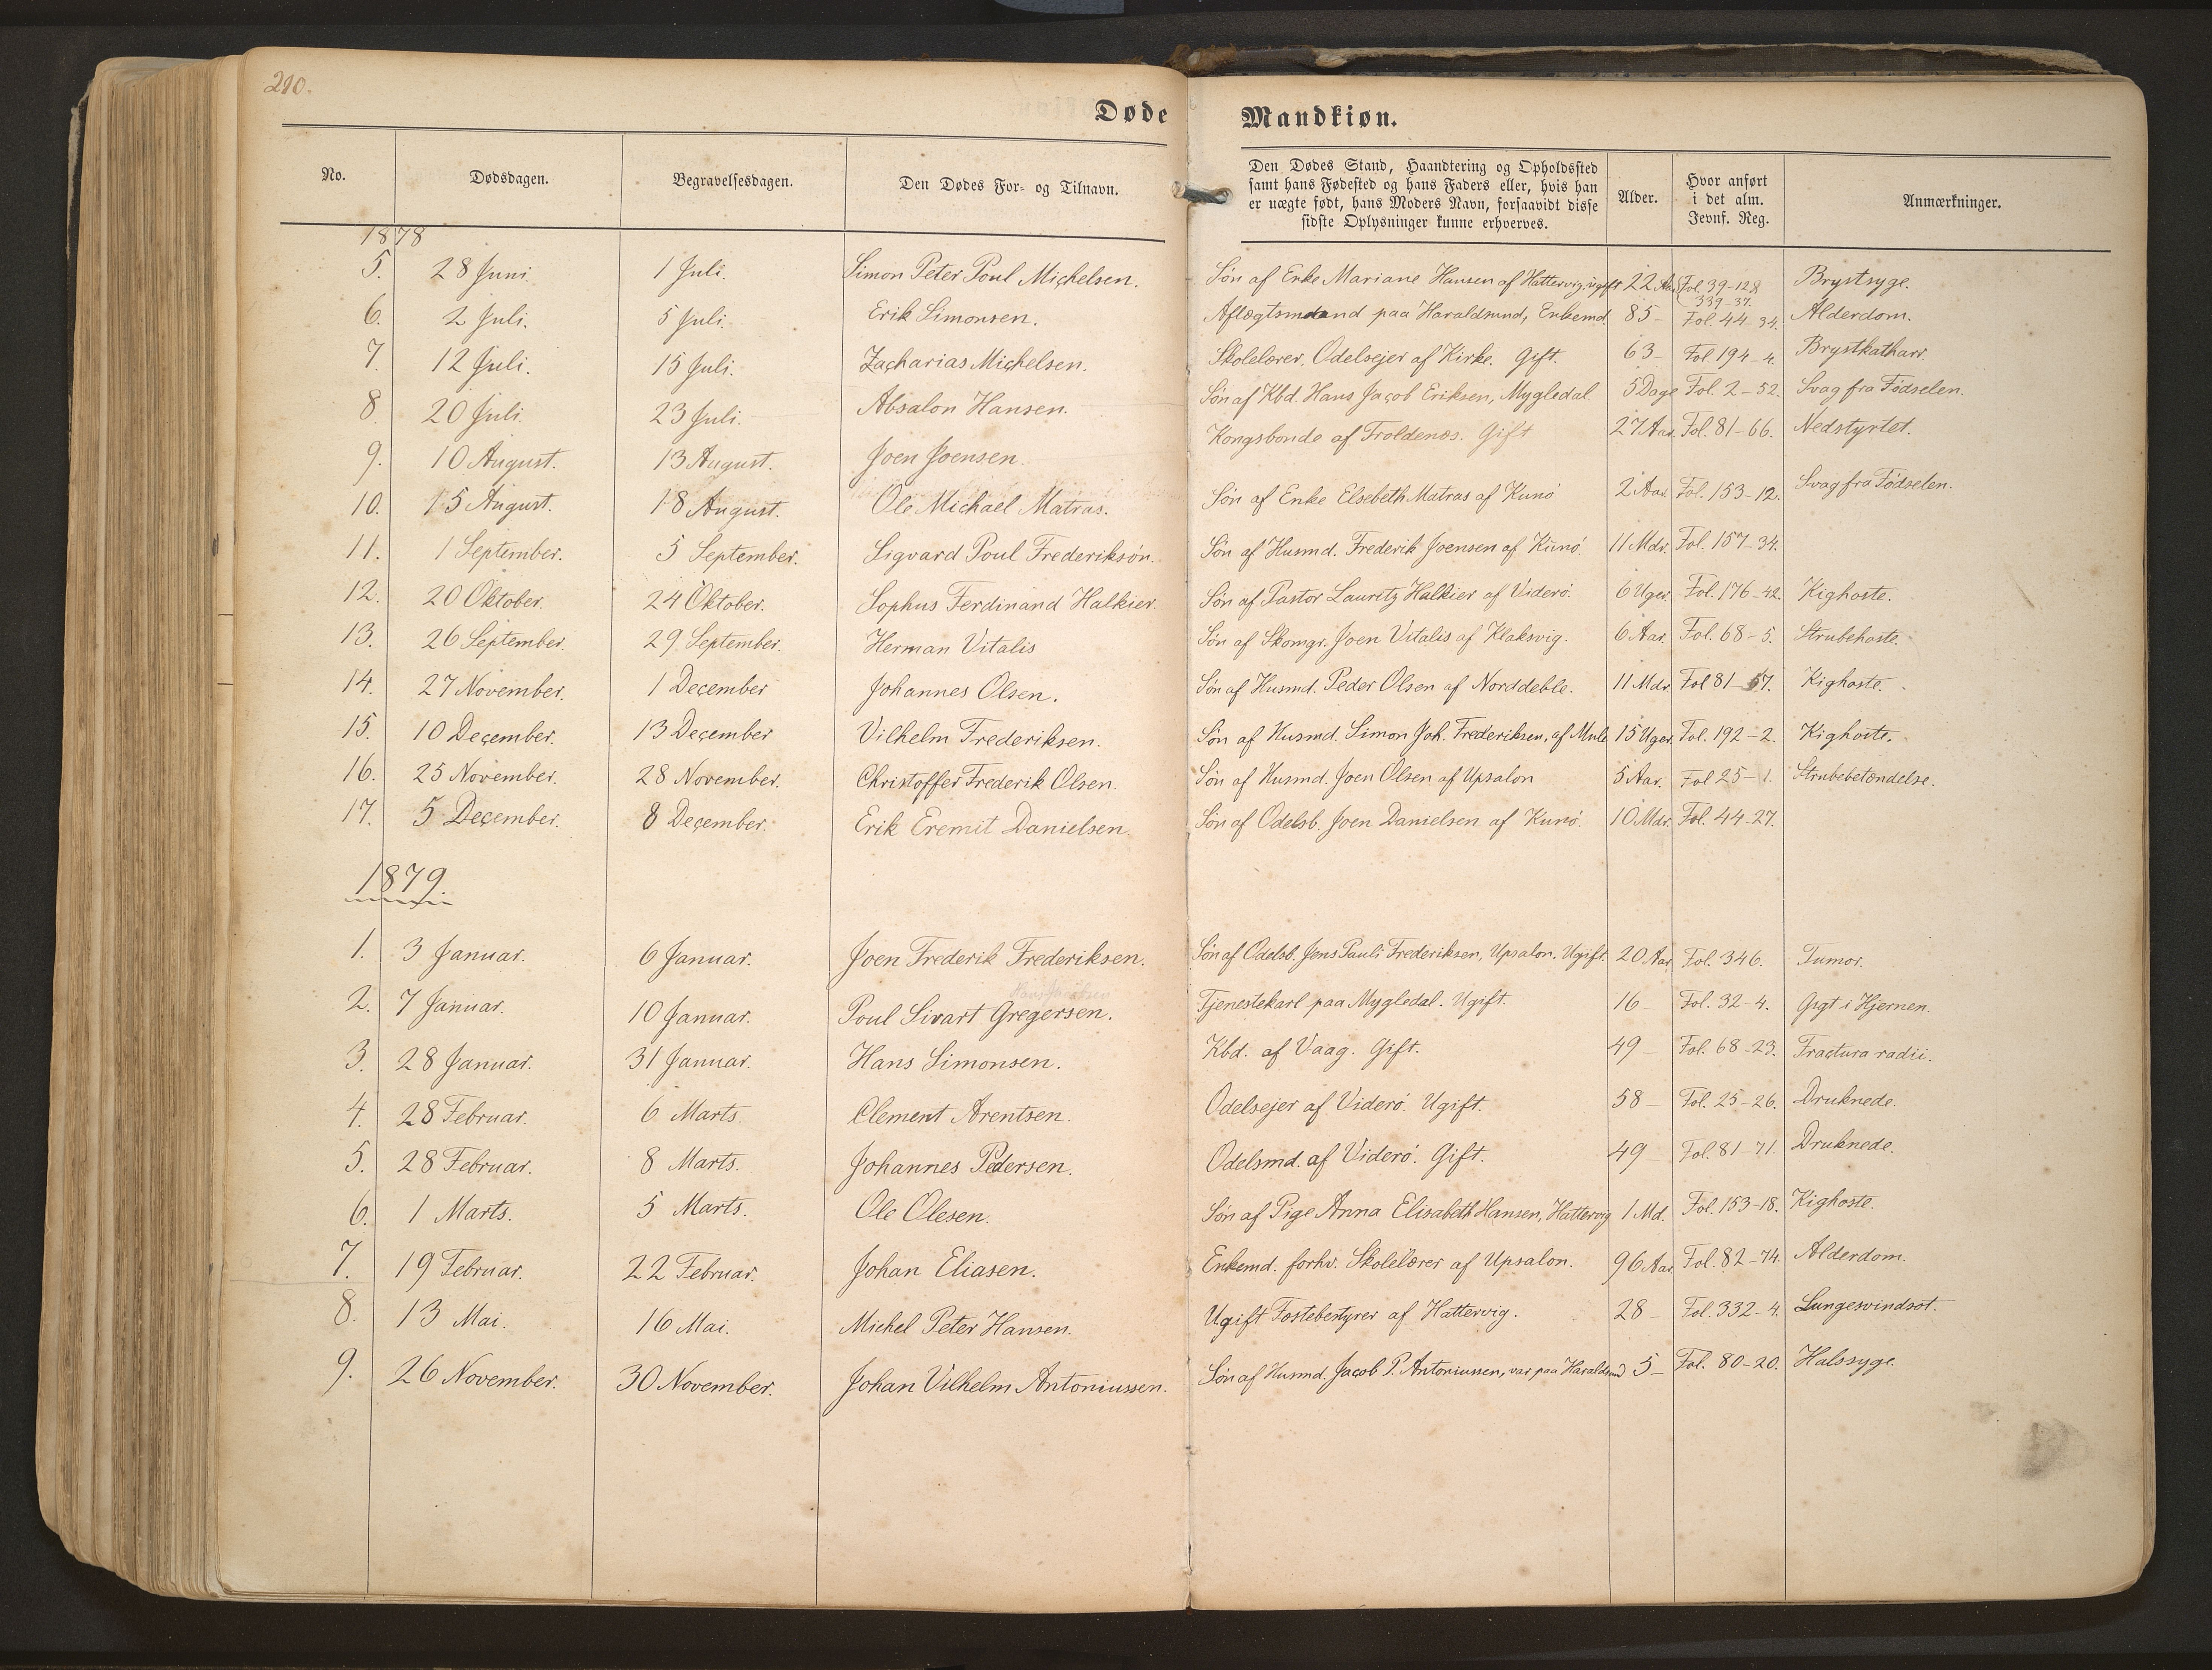 210.
Døde Mandkiøn.
No. Dødsdagen. Begravelsesdagen. Den Dødes For- og Tilnavn. Den Dødes Stand, Haandtering og Opholdssted samt hans Fødested og hans Faders eller, hvis han er uægte født, hans Moders Navn, forsaavidt disse sidste Oplysninger kunne erhverves. Alder. Hvor anført i det alm. Jevnf. Reg. Anmærkninger.
1878
5. 28 Juni. 1 Juli. Simon Peter Poul Michelsen. Søn af Enke Mariane Hansen af Hattervig, ugift 22 Aar. Fol. 39-128 339-37. Brystsyge.
6. 2 Juli. 5 Juli. Erik Simonsen. Aflægtsmand paa Haraldsund, Enkemd. 85- Fol. 44-34. Alderdom.
7. 12 Juli. 15 Juli. Zacharias Michelsen. Skolelærer, Odelsejer af Kirke. Gift. 63- Fol. 194-4. Brystkatharr.
8. 20 Juli. 23 Juli. Absalon Hansen. Søn af Kbd. Hans Jacob Eriksen, Mygledal 5 Dage Fol. 2-52. Svag fra Fødselen.
9. 10 August. 13 August. Joen Joensen. Kongsbonde af Troldenæs. Gift 27 Aar. Fol. 81-66. Nedstyrtet.
10. 15 August. 18 August. Ole Michael Matras. Søn af Enke Elsebeth Matras af Kunø 2 Aar. Fol. 153-12. Svag fra Fødselen.
11. 1 September. 5 September. Sigvard Poul Frederiksøn. Søn af Husmd. Frederik Joensen af Kunø. 11 Mdr. Fol. 157-34.
12. 20 Oktober. 24 Oktober. Sophus Ferdinand Halkier. Søn af Pastor Lauritz Halkier af Viderø. 6 Uger. Fol. 176-42. Kighoste.
13. 26 September. 29 September. Herman Vitalis Søn af Skomgr. Joen Vitalis af Klaksvig. 6 Aar. Fol. 68-5. Strubehoste.
14. 27 November. 1 December Johannes Olsen. Søn af Husmd. Peder Olsen af Norddeble. 11 Mdr. Fol 81-57. Kighoste.
15. 10 December. 13 December Vilhelm Frederiksen. Søn af Husmd. Simon Joh. Frederiksen, af Mule 15 Uger. Fol. 192-2. Kighoste.
16. 25 November. 28 November. Christoffer Frederik Olsen. Søn af Husmd. Joen Olsen af Upsalon 5 Aar. Fol 25-1. Strubebetændelse.
17. 5 December. 8 December. Erik Eremit Danielsen. Søn af Odelsb. Joen Danielsen af Kunø. 10 Mdr. Fol. 44-27.
1879.
1. 3 Januar. 6 Januar. Joen Frederik Frederiksen. Søn af Odelsb. Jens Pauli Frederiksen, Upsalon. Ugift. 20 Aar Fol. 346. Tumor.
2. 7 Januar. 10 Januar. Poul Sivart Gregersen. Tjenestekarl paa Mygledal. Ugift. 16- Fol. 32-4. Gigt i Hjernen.
3. 28 Januar. 31 Januar. Hans Simonsen. Kbd. af Vaag. Gift. 49- Fol. 68-23. Fractura radii.
4. 28 Februar. 6 Marts. Clement Arentsen. Odelsejer af Viderø. Ugift. 58- Fol. 25-26. Druknede.
5. 28 Februar. 8 Marts. Johannes Pedersen. Odelsmd. af Viderø. Gift. 49- Fol. 81-71. Druknede.
6. 1 Marts. 5 Marts. Ole Olesen. Søn af Pige Anna Elisabeth Hansen, Hattervig 1 Md. Fol. 153-18. Kighoste.
7. 19 Februar. 22 Februar. Johan Eliasen. Enkemd. forhv. Skolelærer af Upsalon. 96 Aar. Fol. 82-74. Alderdom.
8. 13 Mai. 16 Mai. Michel Peter Hansen. Ugift Fæstebestyrer af Hattervig. 28- Fol. 332-4. Lungesvindsot.
9. 26 November. 30 November. Johan Vilhelm Antoniussen. Søn af Husmd. Jacob P. Antoniussen, var paa Haraldsund 5- Fol. 80-20. Halssyge.